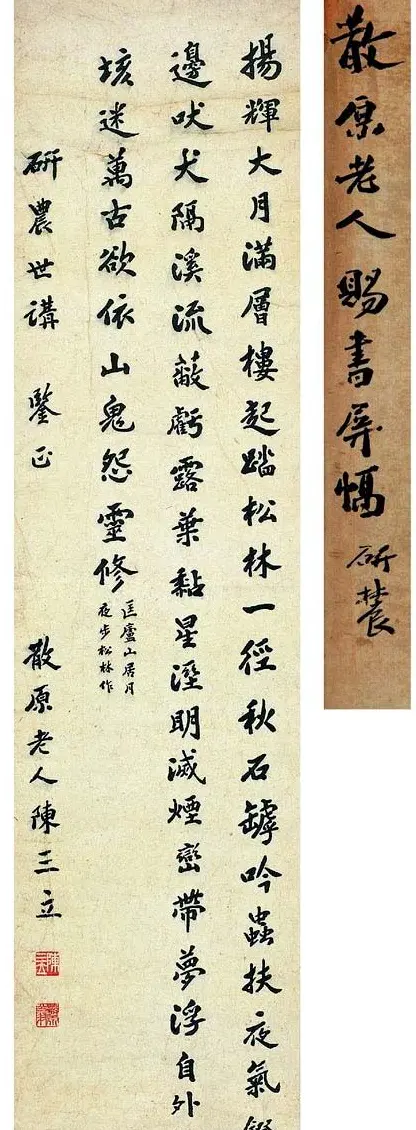 散原老人賜書屏幅 研農
揚輝大月滿層樓起踏松林一徑秋石罅吟蟲扶夜氣
邊吠犬隔溪流蔽虧露葉黏星溼明滅煙巒帶夢浮自外
垓迷萬古欲依山鬼怨靈修
匡廬山居月
夜步松林作
研農世講 鑒正
散原老人陳三立